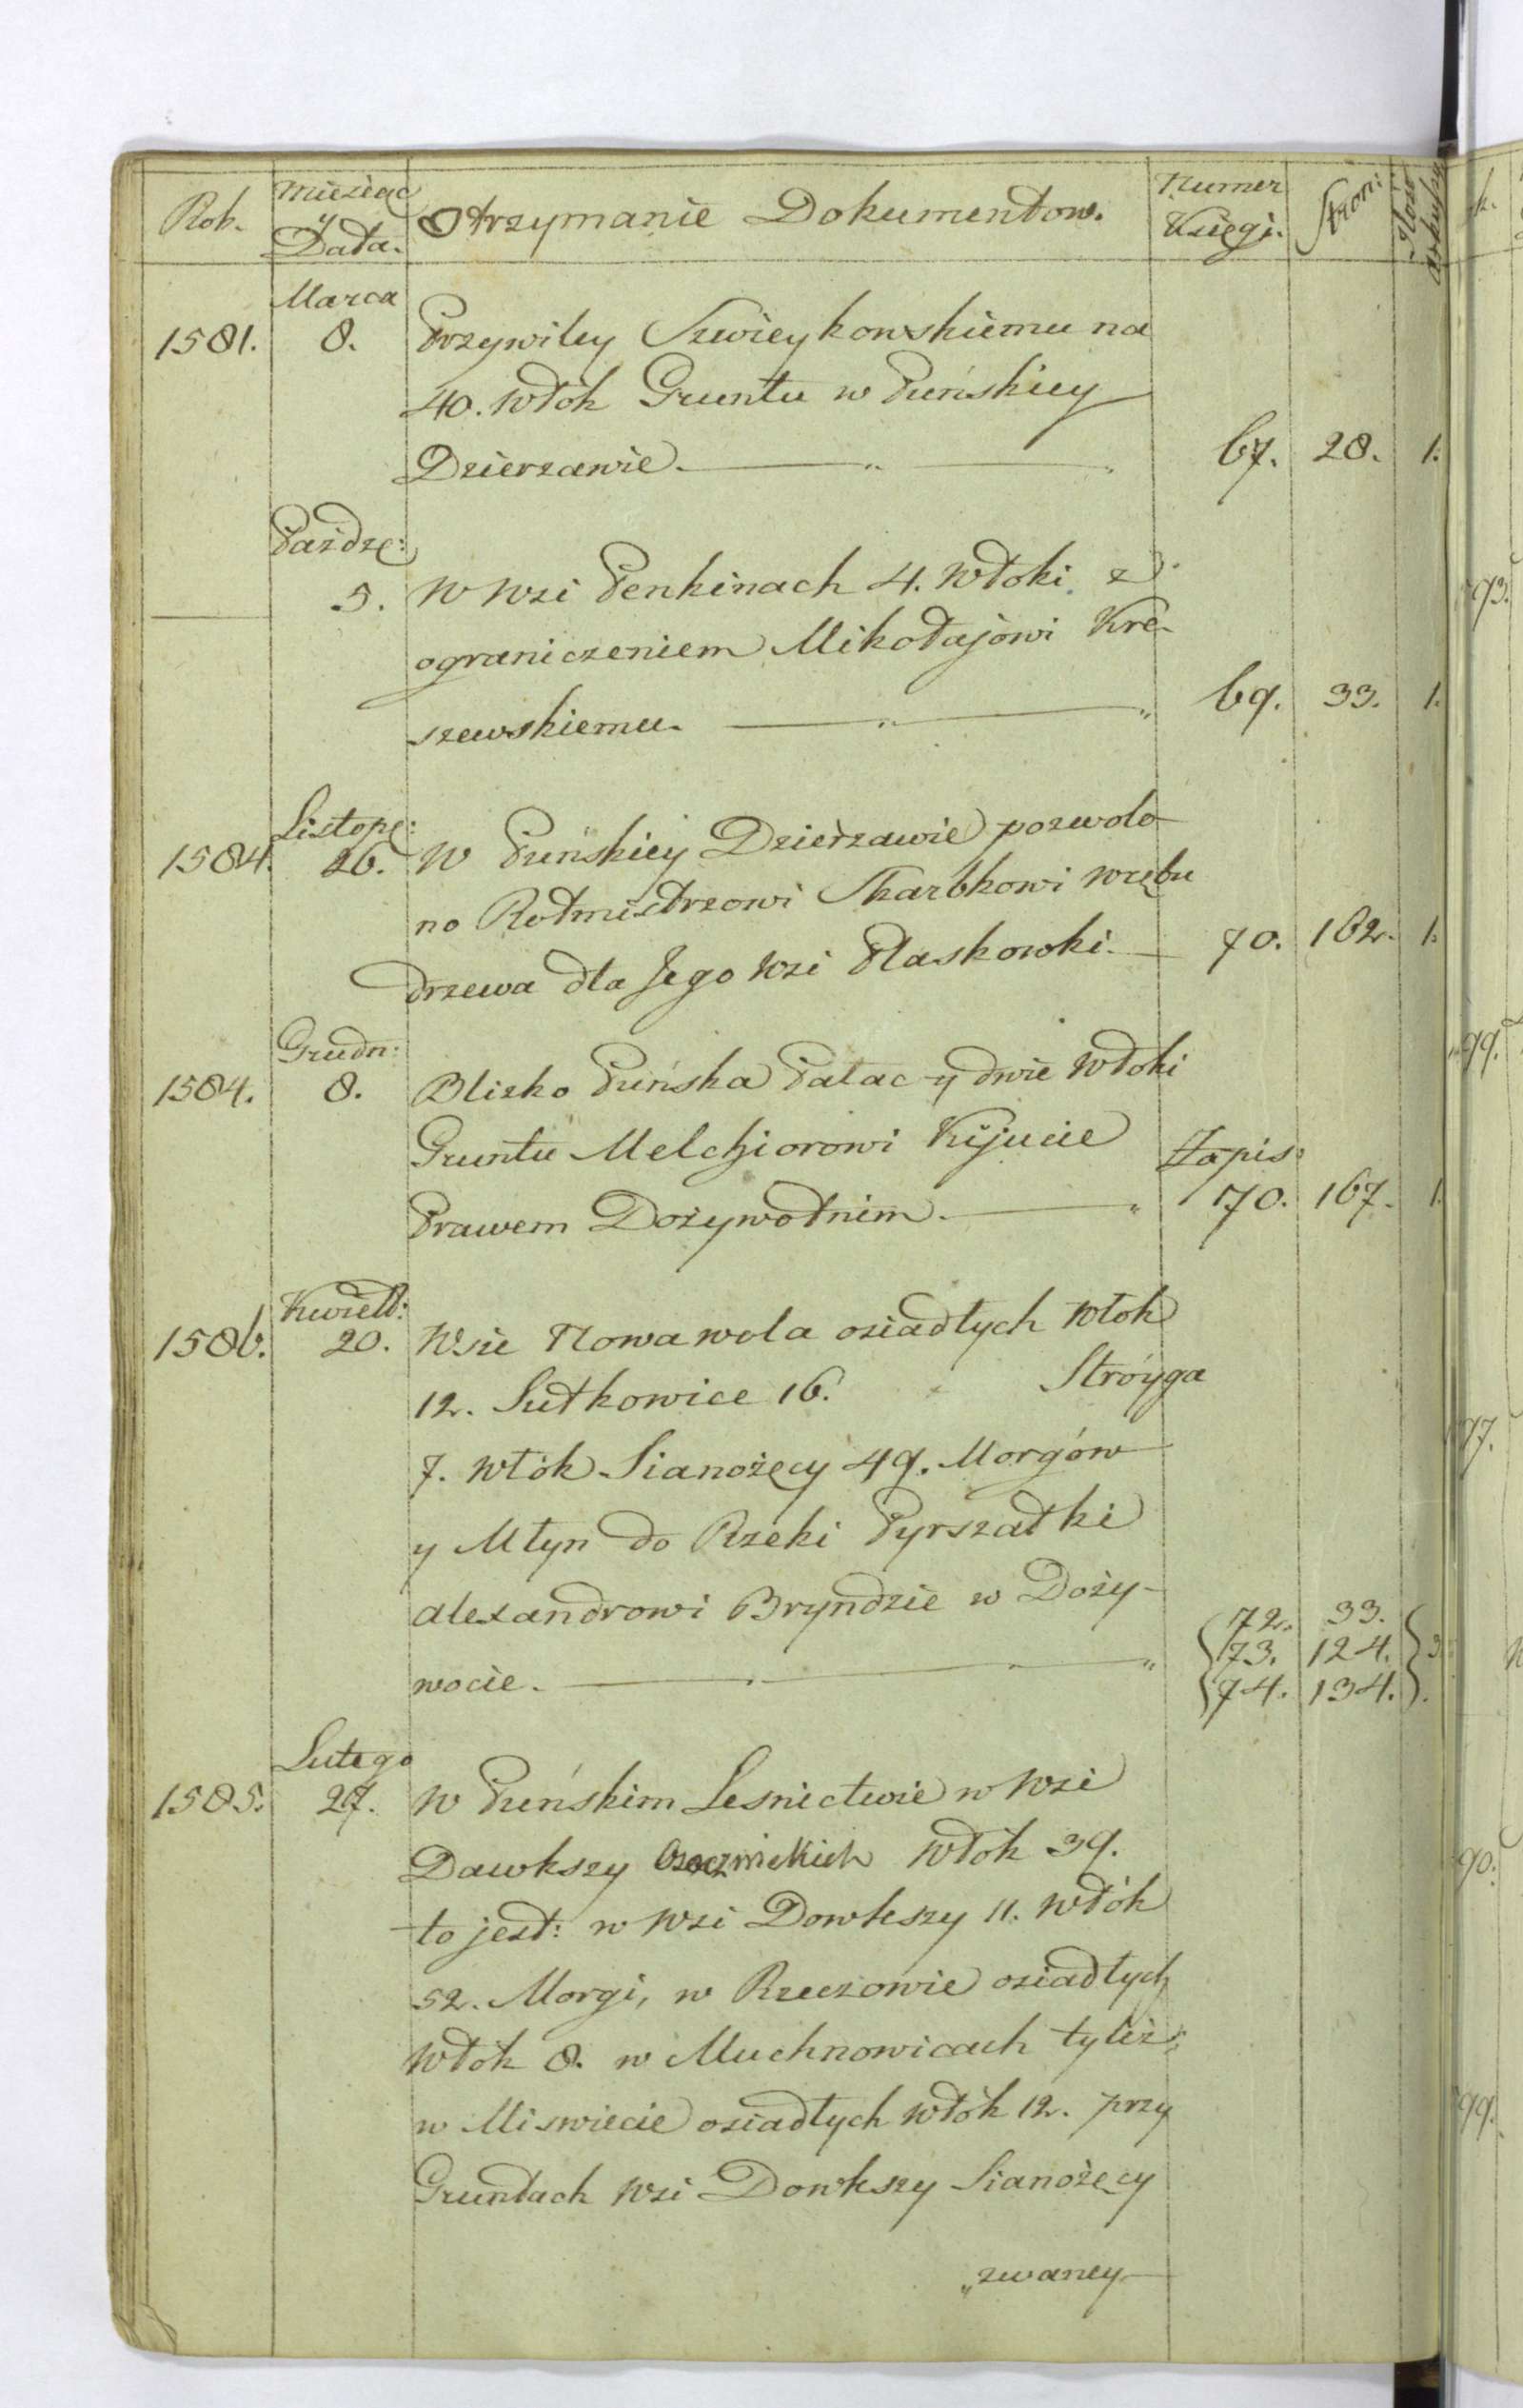 Rok. Miesiąc y Data. Otrzymanie Dokumentow. Numer Księgi. Stron: Ilość arkuszy
Marca
1581. 8. Przywiley Szwieykowskiemu na
40. włók Gruntu w Puńskiey
Dzierzawie. 67. 28. 1.
Paźdze:
5. W Wsi Penkinach 4. włoki z
ograniczeniem Mikołajowi Kre-
szewskiemu. 69. 33. 1.
Listopę:
1584. 26. W Puńskiey Dzierżawie pozwolo-
no Rotmistrzowi Skarbkowi wrębu
drzewa dla Jego Wsi Płaskowki. 70. 162. 1.
Grudn:
1584. 8. Blizko Puńska Pałac y dwie włoki
Gruntu Melchiorowi Kijucie
Prawem Dożywotnim. Zapis: 70. 167. 1.
Kwiet:
1586. 20. Wsie Nowawola osiadłych włok
12. Sutkowice 16. Stróyga
7. włók Sianożęcy 49. Morgów
y Młyn do Rzeki Pyrszatki
alexandrowi Bryndzie w Doży-
wocie. 72. 33.
73. 124. 3
74. 134.
Lutego
1585. 27. W Puńskim Lesnictwie w Wsi
Dawkszy włók 39.
to jest: w Wsi Dowkszy 11. włók
52. Morgi, w Rzeczowie osiadłych
włók 8. w Muchnowicach tyleż;
w Miswiecie osiadłych włók 12. przy
Gruntach Wsi Dowkszy Sianożęcy
„zwaney